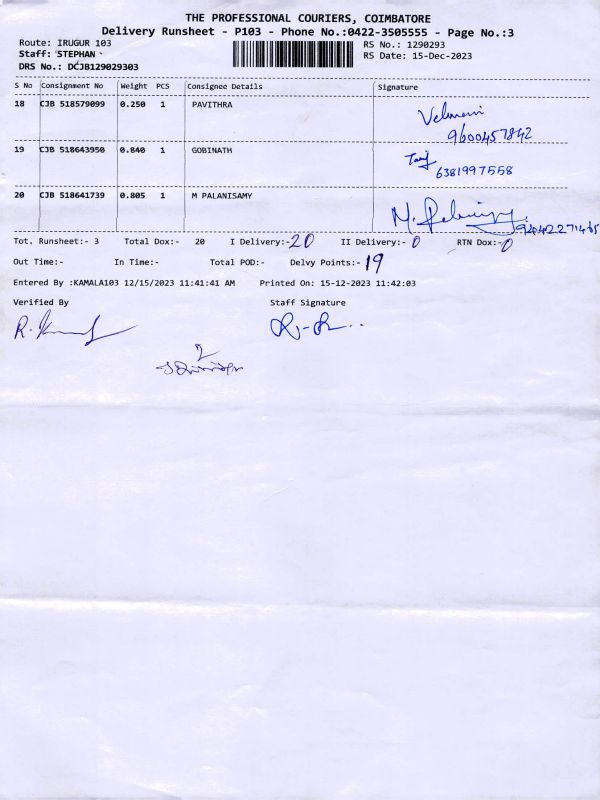 THE PROFESSIONAL COURIERS, COIMBATORE
Delivery Runsheet - P103 - Phone No.:0422-3505555 - Page No.:3
Route: IRUGUR 103
Staff: STEPHAN
DRS No.: DCJB129029303
RS No.: 1290293
RS Date: 15-Dec-2023
S No Consignment No Weight PCS Consignee Details Signature
18 CJB 518579099 0.250 1 PAVITHRA Velmani
9600457842
19 CJB 518643950 0.840 1 GOBINATH
6381997558
20 CJB 518641739 0.805 1 M PALANISAMY
Tot. Runsheet:- 3 Total Dox:- 20 I Delivery:-20 II Delivery:- 0 RTN Dox:-0
Out Time:- In Time:- Total POD:- Delvy Points:- 19
Entered By :KAMALA103 12/15/2023 11:41:41 AM Printed On: 15-12-2023 11:42:03
Verified By Staff Signature